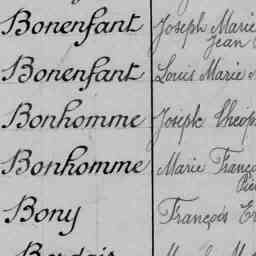 Bonenfant Joseph Marie
Jean
Bonenfant Louis Marie
Bonhomme Joseph
Bonhomme Marie
Bony François